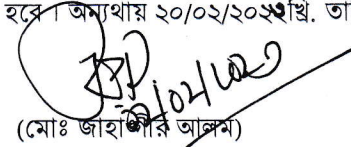 হবে । অন্যথায় ২০/০২/২০২২খ্রি. তা
(মোঃ জাহাঙ্গীর আলম)